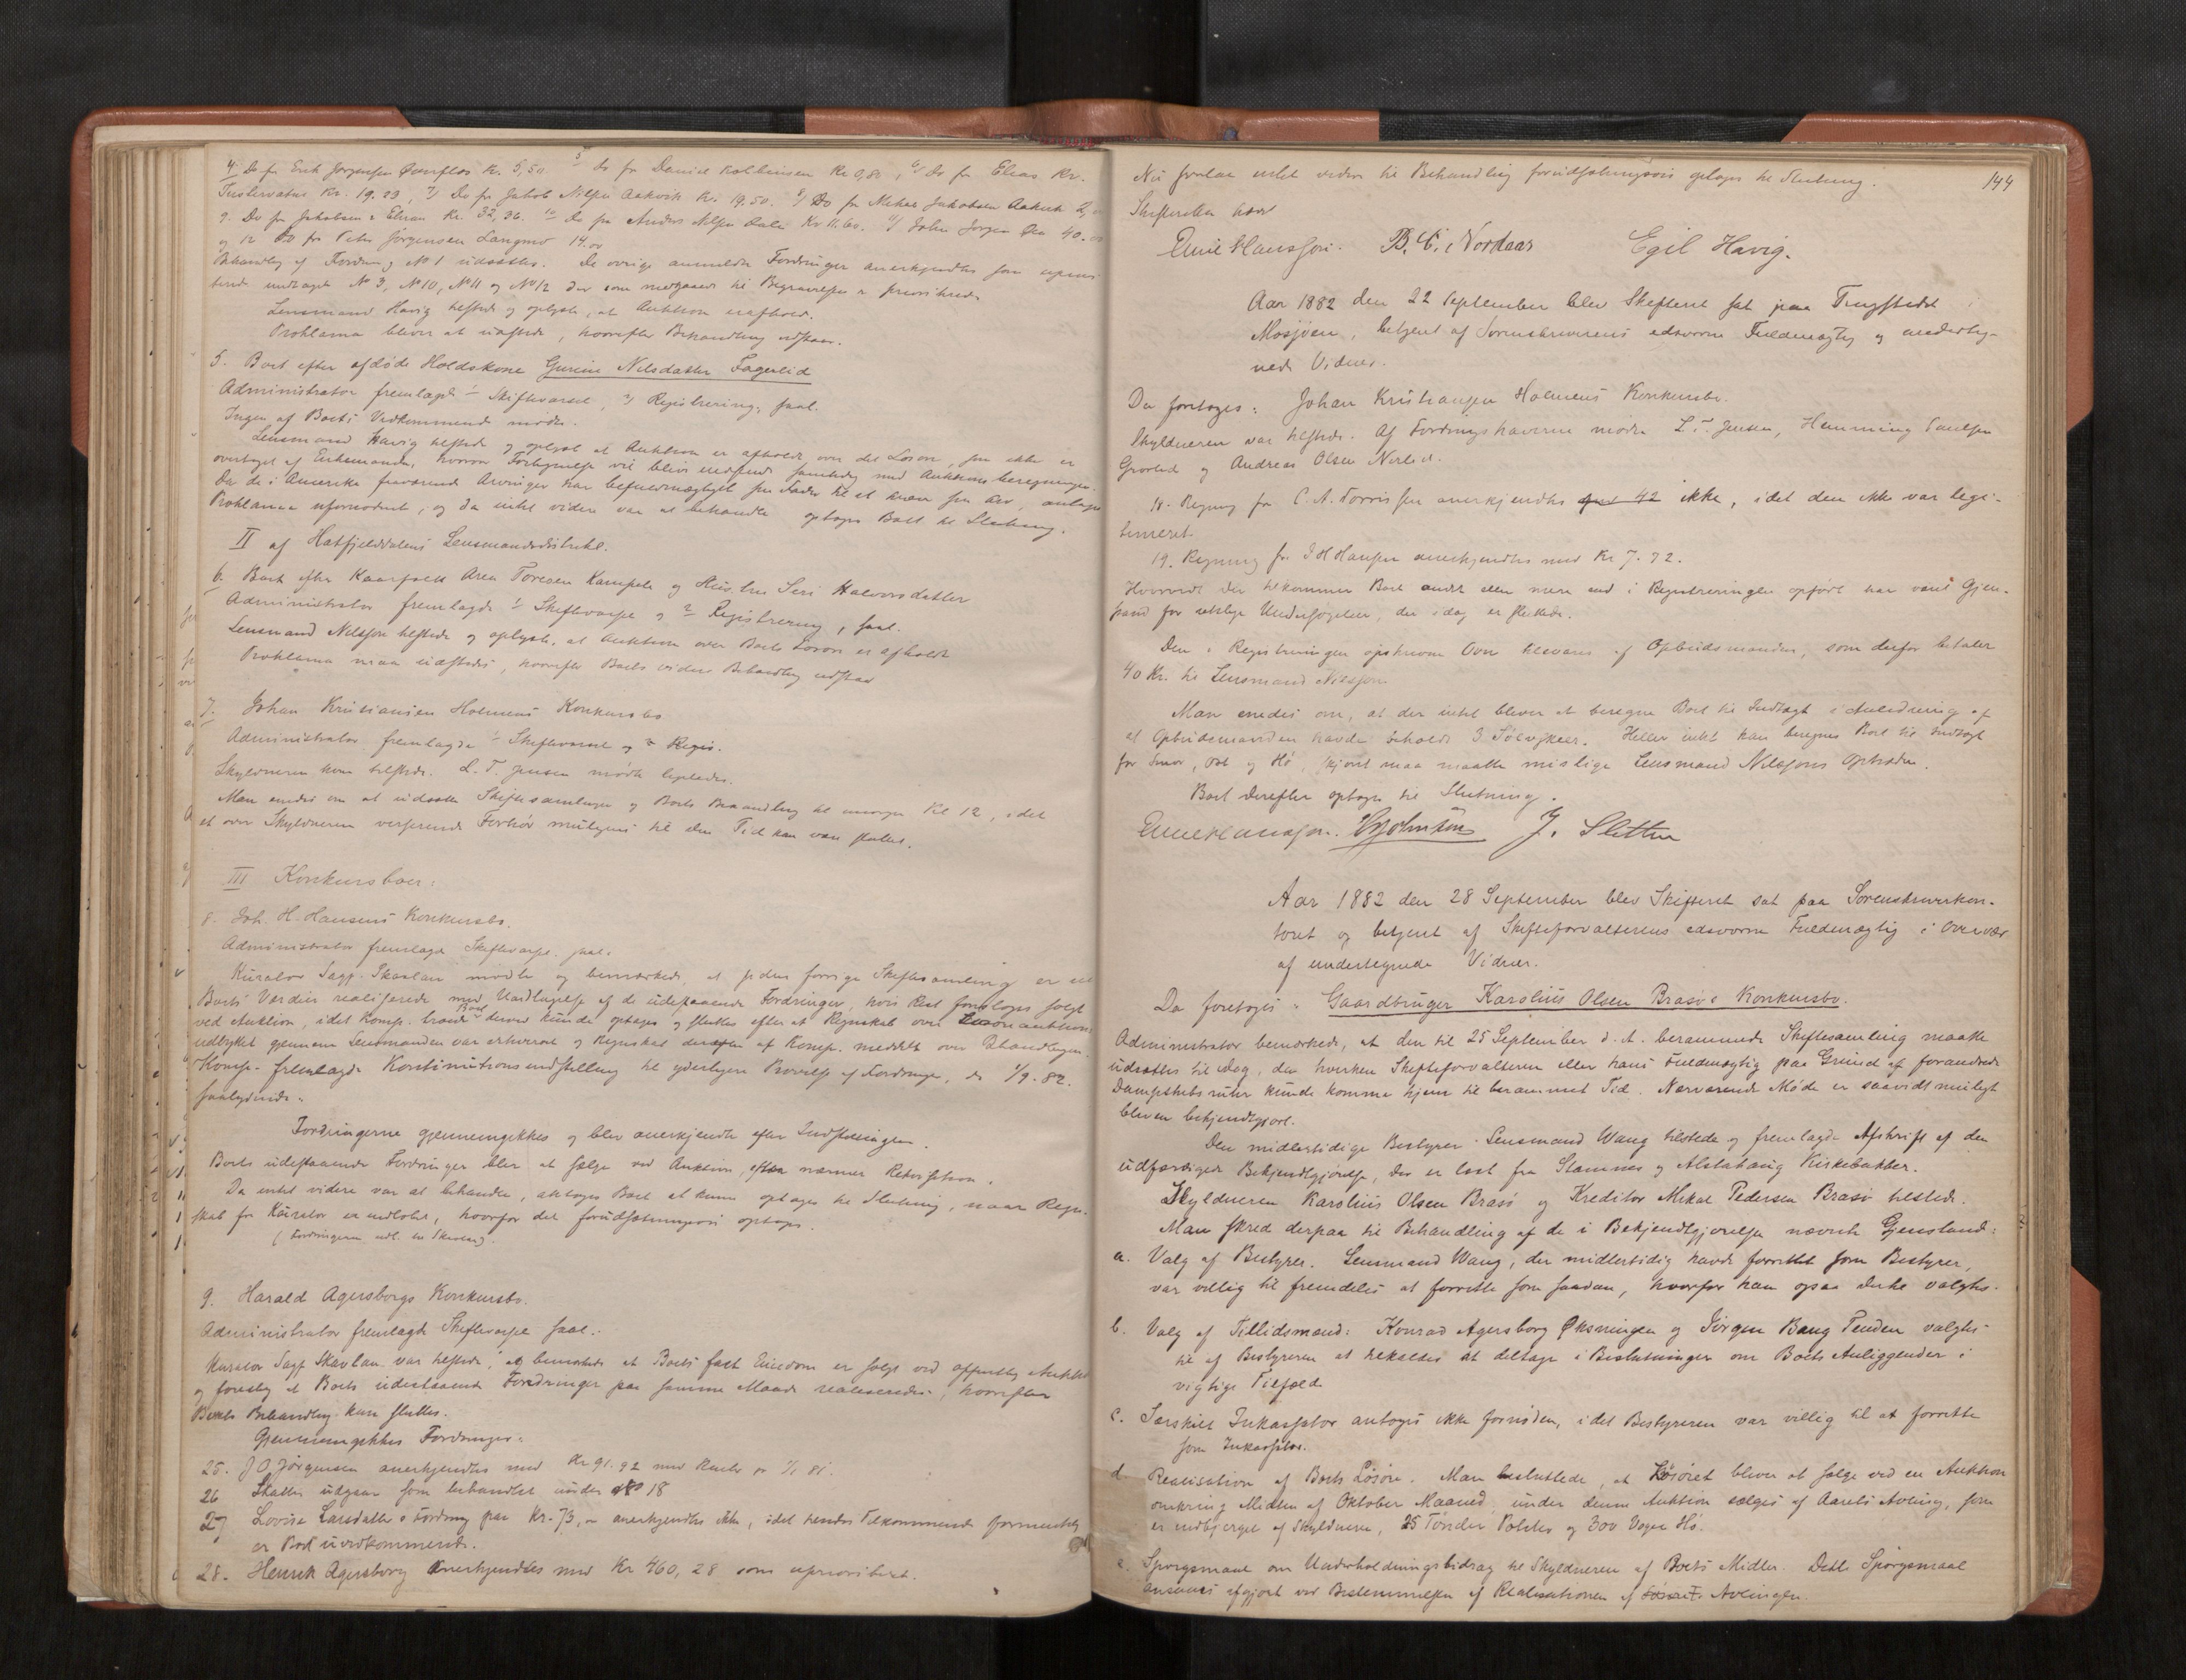 4. Do fra Erik Jørgensen Kr. 5,50 5 do fra Daniel Kolbeinsen Kr 0,80, 6) do fr Elias Kr.
Kr. 19.29, 7) Do fra Jakob Nilsen Aakvik Kr. 19.50. 8) Do fra Mikal Jakobsen Aakvik
9. Do fra Jakobsen & Elias Kr. 32,36. 10 do fra Anders Nilsen Kr 11.60. 11) Johan Jørgen 40.
og 12 Do fra Peter Jørgensen Langmo 14.00
Behandling af Fordring No 1 udsattes. De øvrige anmeldte Fordringer anerkjendtes som upriori-
terede undtagen No 3, No 10, No 11 og No 12 der som medgaaede til Begravelsen er prioriterede
Lensmand Havig tilstede og oplyste, at Auktion er afholdt.
Proklama bliver at udstede, hvorefter Behandling udstaar.
5. Boet efter afdøde Holdskone Gurine Nilsdatter Fagerlid
Administrator fremlagde 1 Skiftevarsel, 2) Registrering, saal.
Ingen af Boets Vedkommende mødte.
Lensmand Havig tilstede og oplyste at Auktion er afholdt over det Løsøre, som ikke er
overtaget af Enkemanden, hvorom Fortegnelse vil blive indsendt samtidig med Auktionsberegningen.
Da de i Amerika fraværende Arvinger har befuldmægtiget sin Fader til at hæve sin Arv, antages
Proklama ufornødent, og da intet videre var at behandle optages Boet til Slutning.
II af Hatfjelddalens Lensmandsdistrikt.
6. Boet efter Kaarfolk Aren Toresen Kampeli og Hustru Siri Halvorsdatter
Administrator fremlagde 1 Skiftevarsel og 2 Registrering, saal.
Lensmand Nilsson tilstede og oplyste, at Auktion over Boets Løsøre er afholdt
Proklama maa udstedes, hvorefter Boets videre Behandling udstaar
7. Johan Kristiansen Holmens Konkursbo
Administrator fremlagde 1 Skiftevarsel og 2 Regis.
Skyldneren kom tilstede. L. T. Jensen mødte ligeledes.
Man enedes om at udsætte Skiftesamlingen og Boets Behandling til imorgen Kl 12, idet
et over Skyldneren verserende Forhør muligens til den Tid kan være sluttet.
III Konkursboer:
8. Joh. H. Hansens Konkursbo.
Administrator fremlagde Skiftevarsel. saal.
Kurator Sagf. Skavlan mødte og bemærkede, at siden forrige Skiftesamling er
Boets Værdier realiserede med Undtagelse af de udestaaende Fordringer, hvis Rest foreslages solgt
ved Auktion, idet Komp. troede Boet derved kunde optages og sluttes efter at Regnskab over Løsøreauktion
udbragt gjennem Lensmanden var erhvervet og Regnskab derefter af Komp. meddelt over Behandlingen.
Komp. fremlagde Kontinuationsindstilling til yderligere Prøvelse af Fordringer, d. 1/9-82.
saalydende:
Fordringerne gjennemgikkes og blev anerkjendte efter Indstillingen.
Boets udestaaende Fordringer blev at sælge ved Auktion, efter nærmere Rekvisition.
Da intet videre var at behandle, antoges Boet at kunne optages til Slutning, naar Regn-
skab fra Kurator er indløbet, hvorfor det forudsætningsvis optages.
( Fordringerne udl. til Skiven)
9. Harald Agersborgs Konkursbo.
Administrator fremlagde Skiftevarsel saal.:
Kurator Sagf. Skavlan var tilstede, og bemærkede at Boets faste Eiendom er solgt ved offentlig Auktion
og foreslog at Boets udestaaende Fordringer paa samme Maade realiseredes, hvorefter
Boets Behandling kan sluttes.
Gjennemgikkes Fordringer:
25. J O Jørgensen anerkjendtes med Kr 91.92 med Renter pr 1/1 81.
26 Skatter udgaar som behandlet under No 18
27 Lovise Larsdatters Fordring paa Kr. 73, anerkjendtes ikke, idet hendes Tilkommende formentlig
er Boet uvedkommende.
28. Henrik Agersborg anerkjendtes med Kr 460,28 som uprioriteret.
144
Nu forelaa intet videre til Behandling forudsætningsvis optages til Slutning.
Skifteretten hævet
Emil Hansson. B. C. Nordaas Egil Havig.
Aar 1882 den 22 September blev Skifteret sat paa Tingstedet
Mosjøen, betjent af Sorenskriverens edsvorne Fuldmægtig og underteg-
nede Vidner.
Da foretoges: Johan Kristiansen Holmens Konkursbo.
Skyldneren var tilstede. Af Fordringshaverne mødte L. T. Jensen, Henning Paulsen
Grovlid og Andreas Olsen Nerlid.
18. Regning fra C. A. Torrissen anerkjendtes ikke, idet den ikke var legi-
timeret.
19. Regning fra J H Hansen anerkjendtes med Kr 7.72.
Hvorvidt der tilkommer Boet andet eller mere end i Registreringen opført har været Gjen-
stand for retslige Undersøgelser, der idag er sluttede.
Den i Registreringen opskrevne Ovn tilevnes af Opbudsmanden, som derfor betaler
40 Kr. til Lensmand Nilsson.
Man enedes om, at der intet bliver at beregne Boet til Indtægt i Anledning af
at Opbudsmanden havde beholdt 3 Sølvskeer. Heller intet kan beregnes Boet til Indtægt
for Smør, Ost og Hø, skjønt maa maatte mislige Lensmand Nilssons Optræden.
Boet derefter optages til Slutning.
Emil Hansson. HJohnsen J. Sletten
Aar 1882 den 28 September blev Skifteret sat paa Sorenskriverkon-
toret og betjent af Skifteforvalterens edsvorne Fuldmægtig i Overvær
af undertegnede Vidner.
Da foretoges: Gaardbruger Karolius Olsen Brasøs Konkursbo.
Administrator bemærkede, at den til 25 September d. A. berammede Skiftesamling maatte
udsættes til idag, da hverken Skifteforvalteren eller hans Fuldmægtig paa Grund af forandrede
Dampskibsruter kunde komme hjem til berammet Tid. Nærværende Møde er saavidt muligt
bleven bekjendtgjort.
Den midlertidige Bestyrer Lensmand Wang tilstede og fremlagde Afskrift af den
udfærdigede Bekjendtgjørelse, der er læst fra Stamnes og Alstahaug Kirkebakker.
Skyldneren Karolius Olsen Brasø og Kreditor Mikal Pedersen Brasø tilstede.
Man skred derpaa til Behandling af de i Bekjendtgjørelsen nævnte Gjenstand:
a. Valg af Bestyrer. Lensmand Wang, der midlertidig havde forrettet som Bestyrer,
var villig til fremdeles at forrette som saadan, hvorfor han ogsaa dertil valgtes.
b. Valg af Tillidsmænd: Konrad Agersborg Øksningen og Jørgen Bang Tenden valgtes
til af Bestyreren at tilkaldes at deltage i Beslutninger om Boets Anliggender i
vigtige Tilfælde
c. Særskilt Inkassator antoges ikke fornøden, idet Bestyreren var villig til at forrette
som Inkassator.
d Realisation af Boets Løsøre. Man besluttede, at Løsøret bliver at sælge ved en Auktion
omkring Midten af Oktober Maaned under denne Auktion sælges af Aarets Avling, som
er indbjerget af Skyldneren, 25 Tønder Poteter og 300 Voger Hø.
e. Spørgsmaal om Underholdningsbidrag til Skyldneren af Boets Midler. Dette Spørgsmaal
ansaaes afgjort ved Bestemmelsen af Realisationen af Løsøret Avlingen.